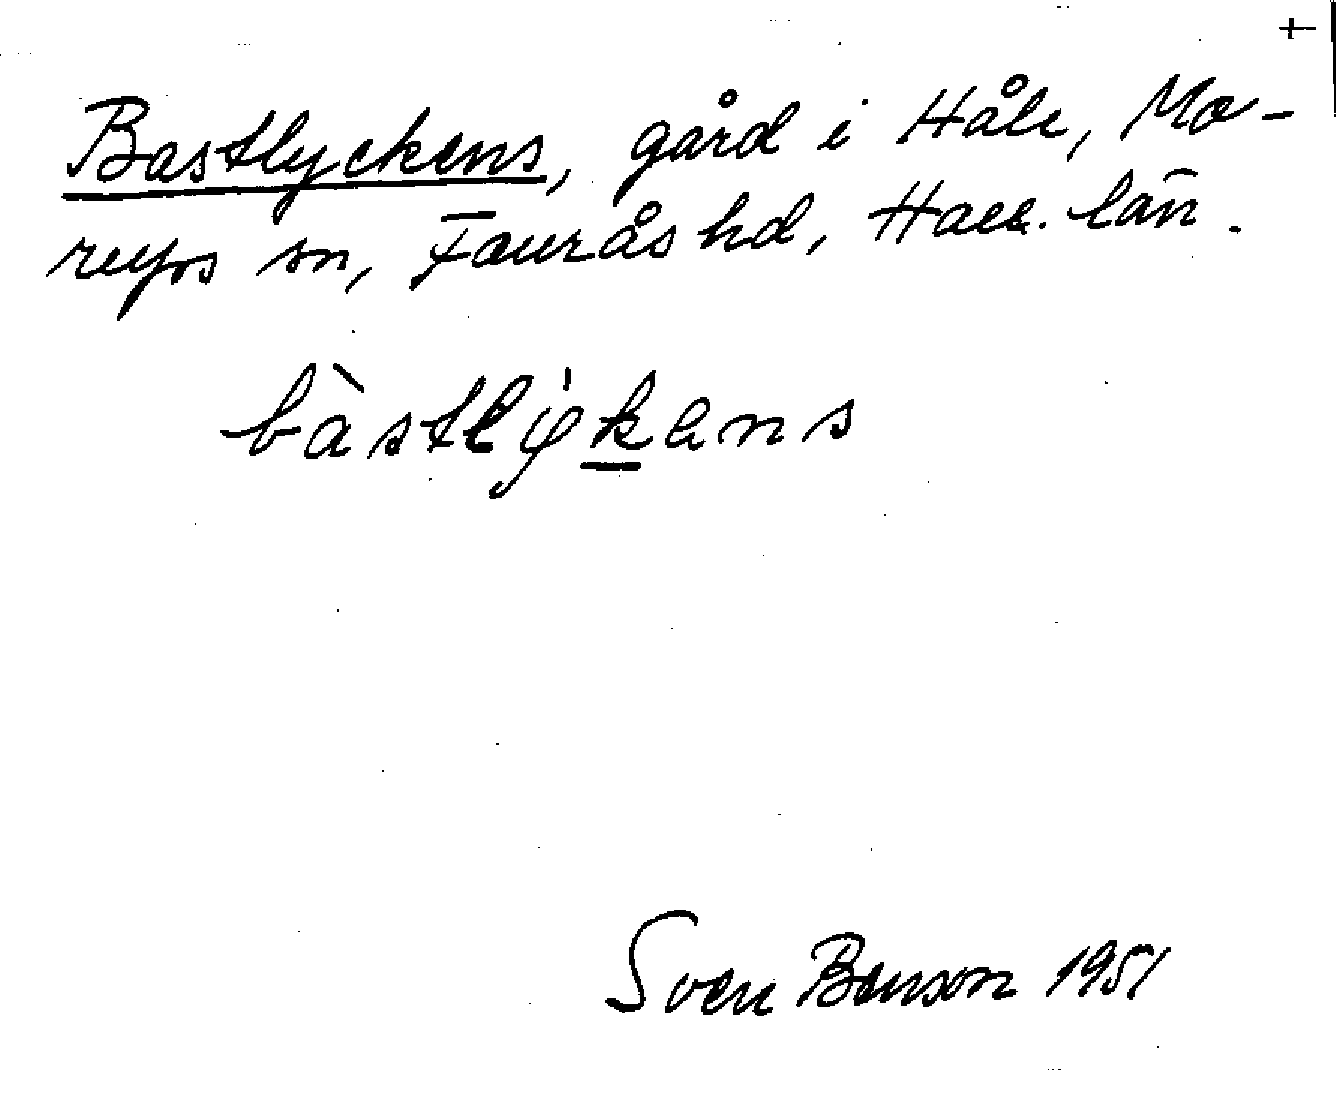 +
Bastlyckens, gård i Håle, Mo-
rups sn, Faurås hd, Hall. län.
bàstlyk̲ans
Sven Benson 1951